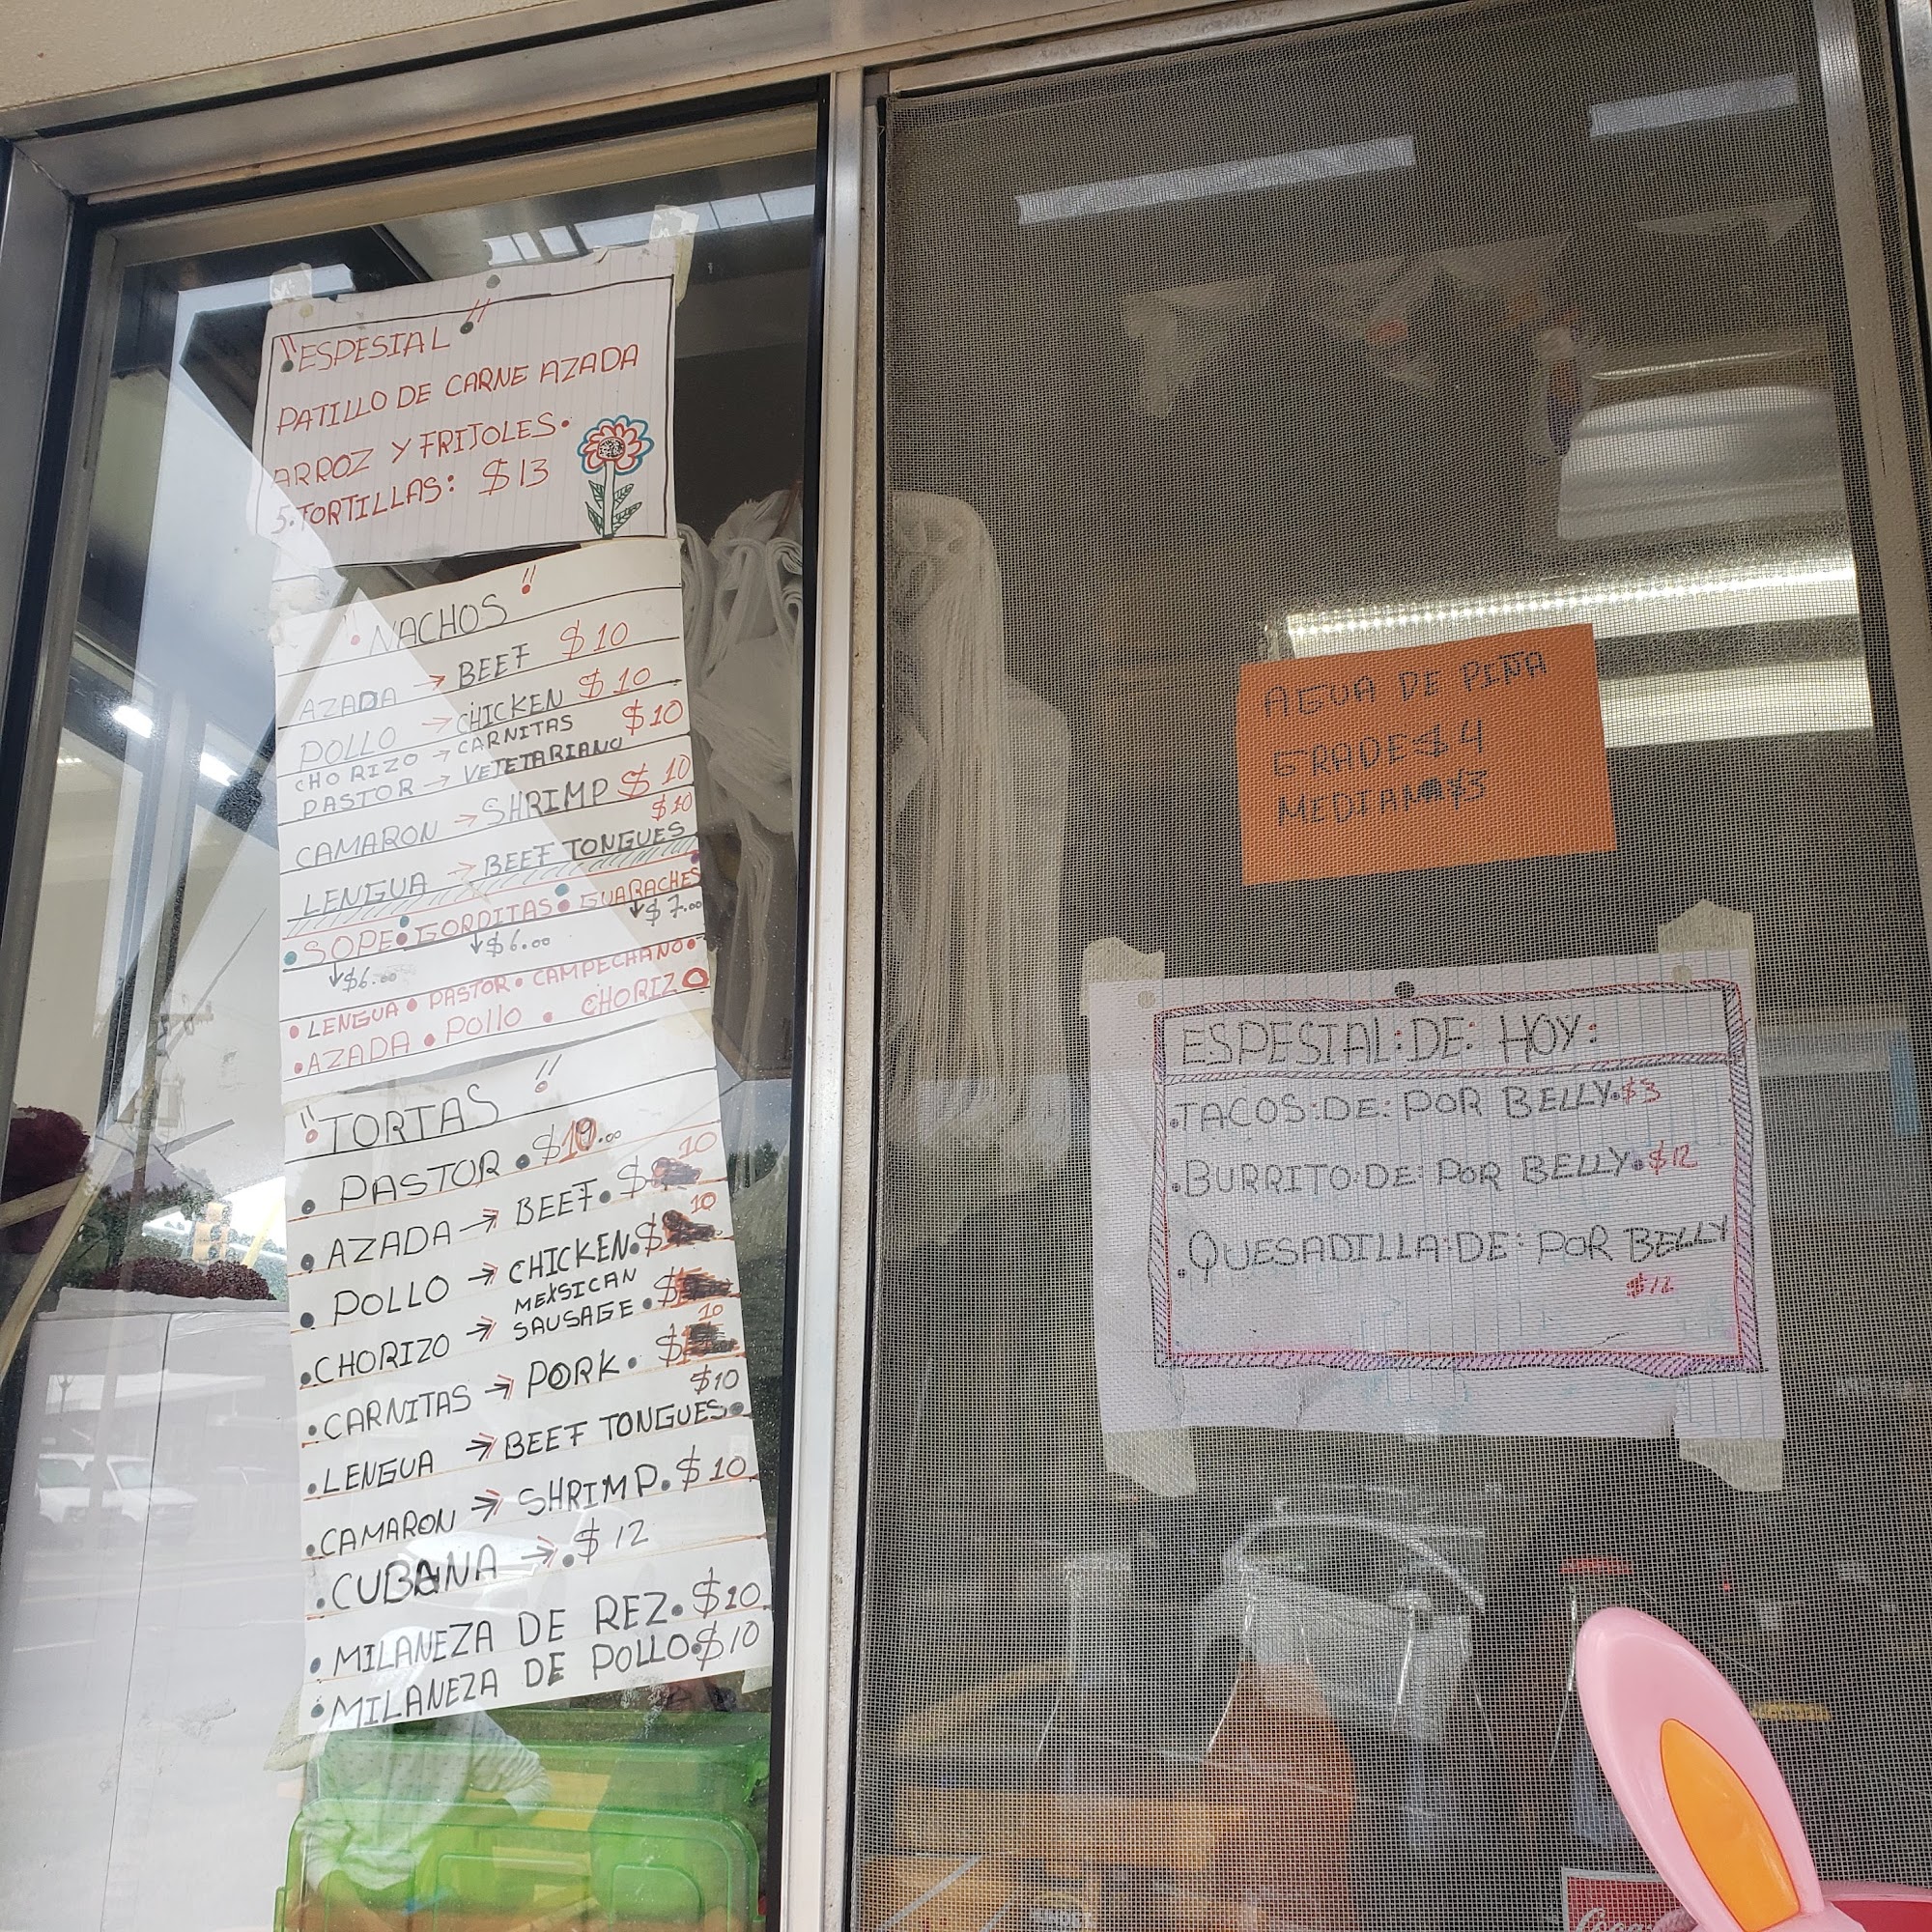 "ESPESIAL"
PATILLO DE CARNE AZADA
ARROZ Y FRIJOLES.
5.TORTILLAS: $13
NACHOS !!
AZADA → BEEF $10
POLLO → CHICKEN $10
CHORIZO → CARNITAS $10
PASTOR → VEJETARIANO
CAMARON → SHRIMP $10
LENGUA → BEEF TONGUES $10
• SOPE • GORDITAS • GUARACHES
↓$6.00 ↓$6.00 ↓$7.00
• LENGUA • PASTOR • CAMPECHANO •
• AZADA • Pollo • CHORIZO
"TORTAS !!
• PASTOR • $10.00
• AZADA → BEEF • $ 10
• POLLO → CHICKEN • $ 10
• CHORIZO → MEXSICAN SAUSAGE • $
• CARNITAS → PORK • $ 10
• LENGUA → BEEF TONGUES • $10
• CAMARON → SHRIMP. $10
• CUBANA → .$12
• MILANEZA DE REZ. $10
• MILANEZA DE POLLO $10
AGUA DE PIÑA
GRADE $4
MEDIANA $3
ESPESIAL:DE: HOY:
•TACOS:DE: POR BELLY.$3
•BURRITO:DE: POR BELLY.$12
•QUESADILLA:DE: POR BELLY
$12
Coca